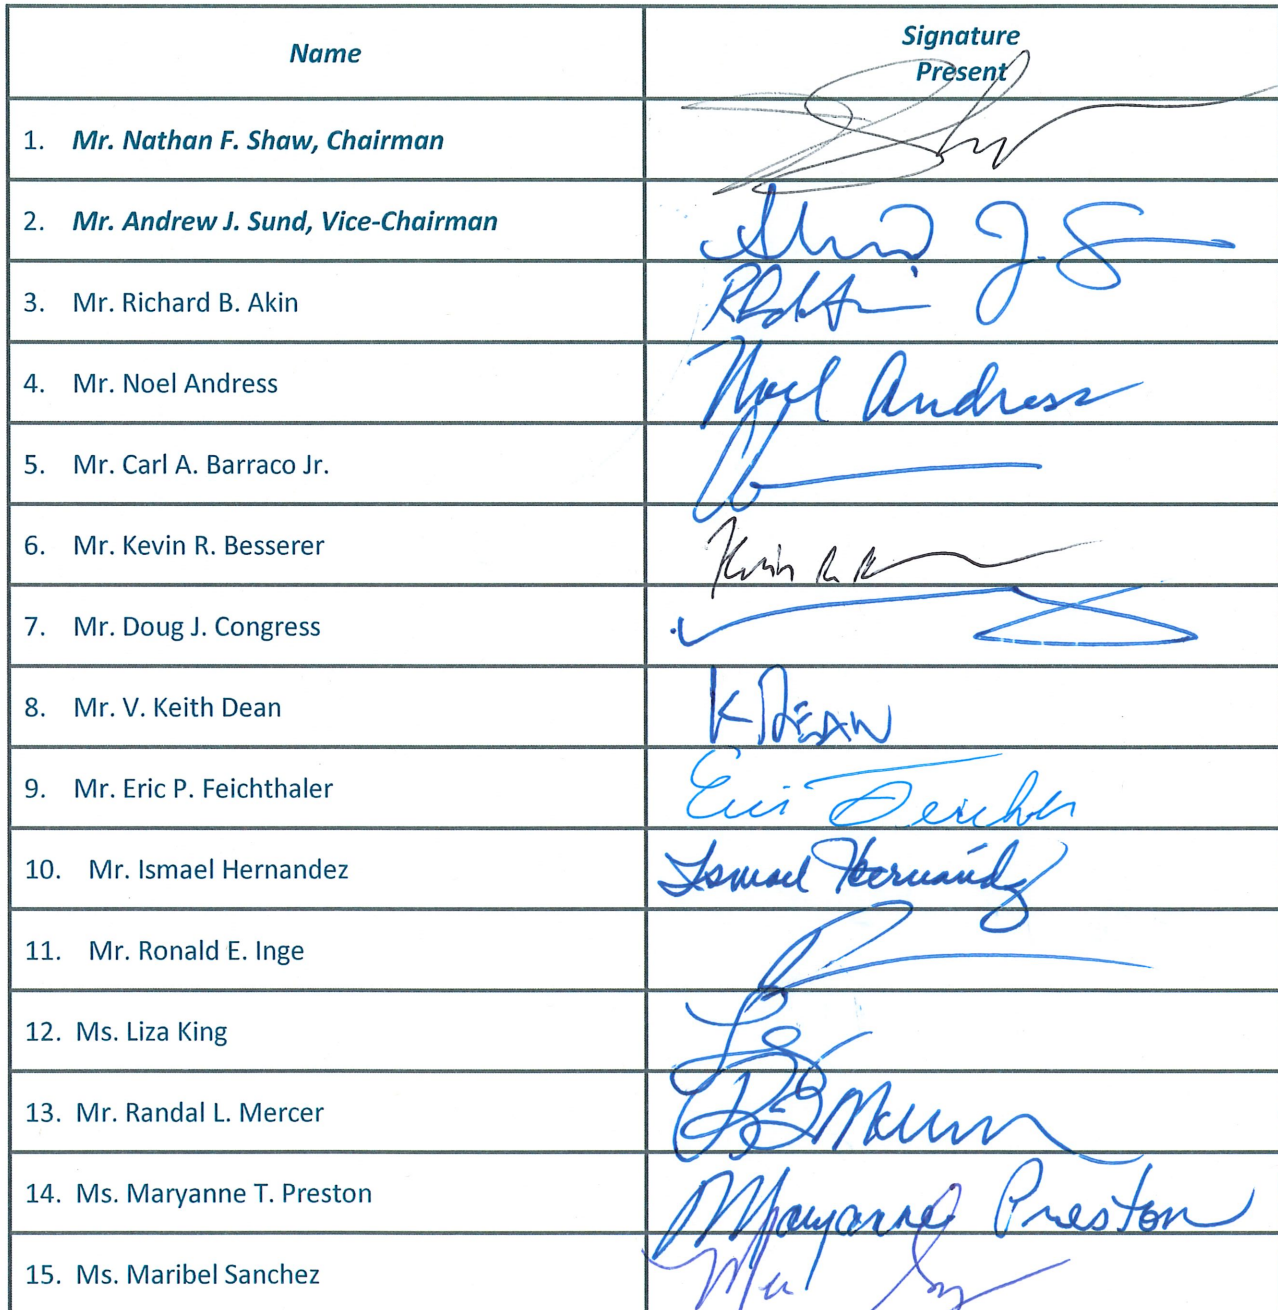 Name
Signature
Present
1. Mr. Nathan F. Shaw, Chairman
2. Mr. Andrew J. Sund, Vice-Chairman
3. Mr. Richard B. Akin
4. Mr. Noel Andress Noel Andress
5. Mr. Carl A. Barraco Jr.
6. Mr. Kevin R. Besserer Kevin R.
7. Mr. Doug J. Congress
8. Mr. V. Keith Dean K DEAN
9. Mr. Eric P. Feichthaler Eric
10. Mr. Ismael Hernandez Ismael Hernandz
11. Mr. Ronald E. Inge
12. Ms. Liza King
13. Mr. Randal L. Mercer
14. Ms. Maryanne T. Preston Maryanne Preston
15. Ms. Maribel Sanchez